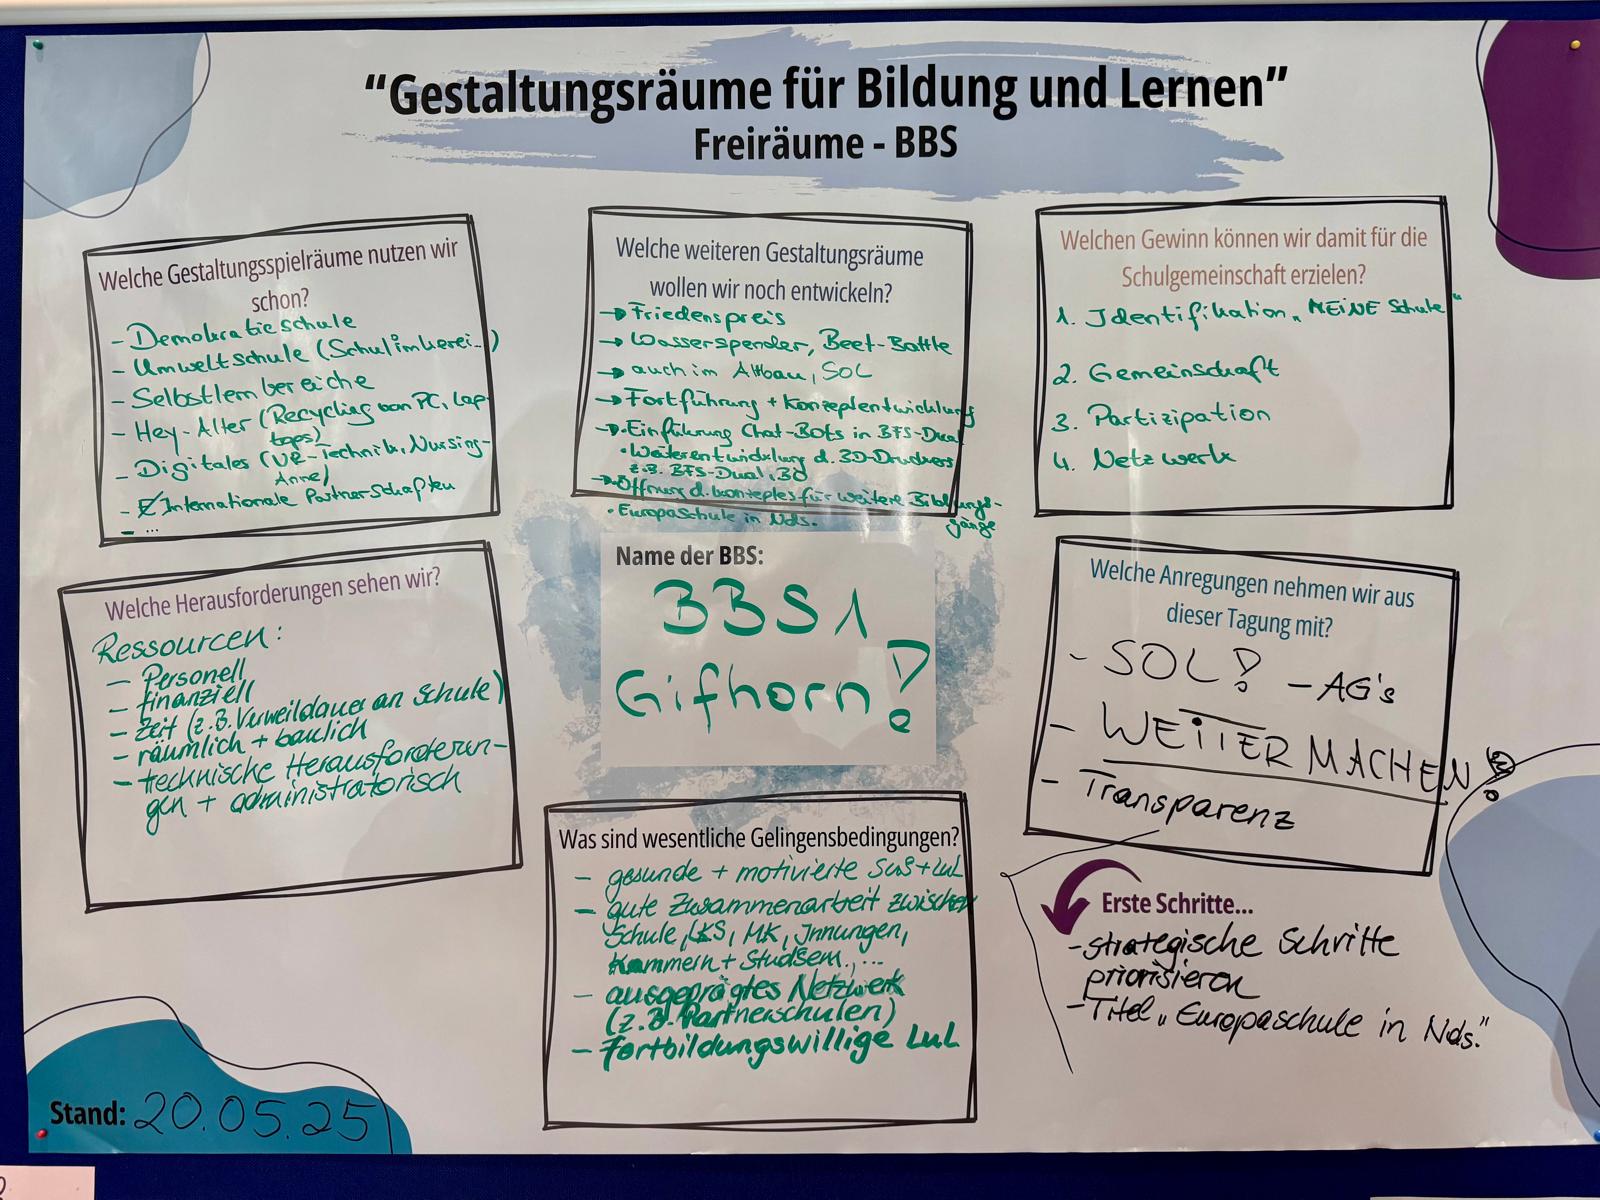 “Gestaltungsräume für Bildung und Lernen”
Freiräume - BBS
Welche Gestaltungsspielräume nutzen wir
schon?
- Demokratieschule
- Umweltschule (Schulimkerei...)
- Selbstlernbereiche
- Hey-Alter (Recycling von PC, Lap-
tops)
- Digitales (VR-Technik, Nursing-
Anne)
- Internationale Partnerschaften
- ...
Welche weiteren Gestaltungsräume
wollen wir noch entwickeln?
→ Friedenspreis
→ Wasserspender, Beet-Battle
→ auch im Altbau, SOL
→ Fortführung + Konzeptentwicklung
→ • Einführung Chat-Bots in BFS-Dual
• Weiterentwicklung d. 3D-Druckers
z.B. BFS-Dual, 3D
→ Öffnung d. Konzeptes für weitere Bildungs-
gänge
• Europaschule in Nds.
Welchen Gewinn können wir damit für die
Schulgemeinschaft erzielen?
1. Identifikation „MEINE Schule“
2. Gemeinschaft
3. Partizipation
4. Netzwerk
Welche Herausforderungen sehen wir?
Ressourcen:
- Personell
- finanziell
- Zeit (z.B. Verweildauer an Schule)
- räumlich + baulich
- technische Herausforderun-
gen + administratorisch
Name der BBS:
BBS 1
Gifhorn!
Welche Anregungen nehmen wir aus
dieser Tagung mit?
- SOL! - AG's
- WEITER MACHEN!
- Transparenz
Was sind wesentliche Gelingensbedingungen?
- gesunde + motivierte SuS + LuL
- gute Zusammenarbeit zwischen
Schule, LKS, MK, Innungen,
Kammern + StudSem., ...
- ausgeprägtes Netzwerk
(z.B. Partnerschulen)
- fortbildungswillige LuL
Erste Schritte...
- strategische Schritte
priorisieren
- Titel „Europaschule in Nds.“
Stand: 20.05.25